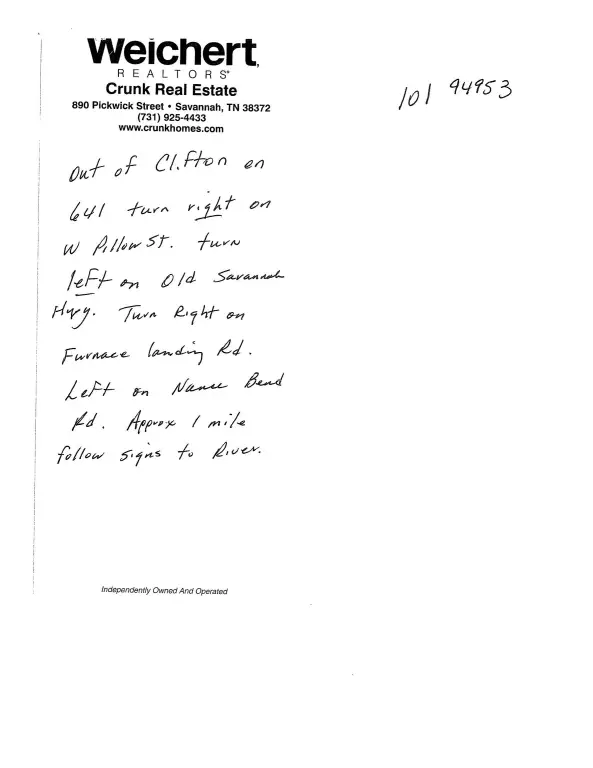 Weichert®
REALTORS®
Crunk Real Estate
890 Pickwick Street • Savannah, TN 38372
(731) 925-4433
www.crunkhomes.com
101 94953
Out of Clifton on
641 turn right on
W Pillow ST. turn
left on Old Savannah
Hwy. Turn Right on
Furnace landing Rd.
Left on Nance Bend
Rd. Approx 1 mile
follow signs to River.
Independently Owned And Operated